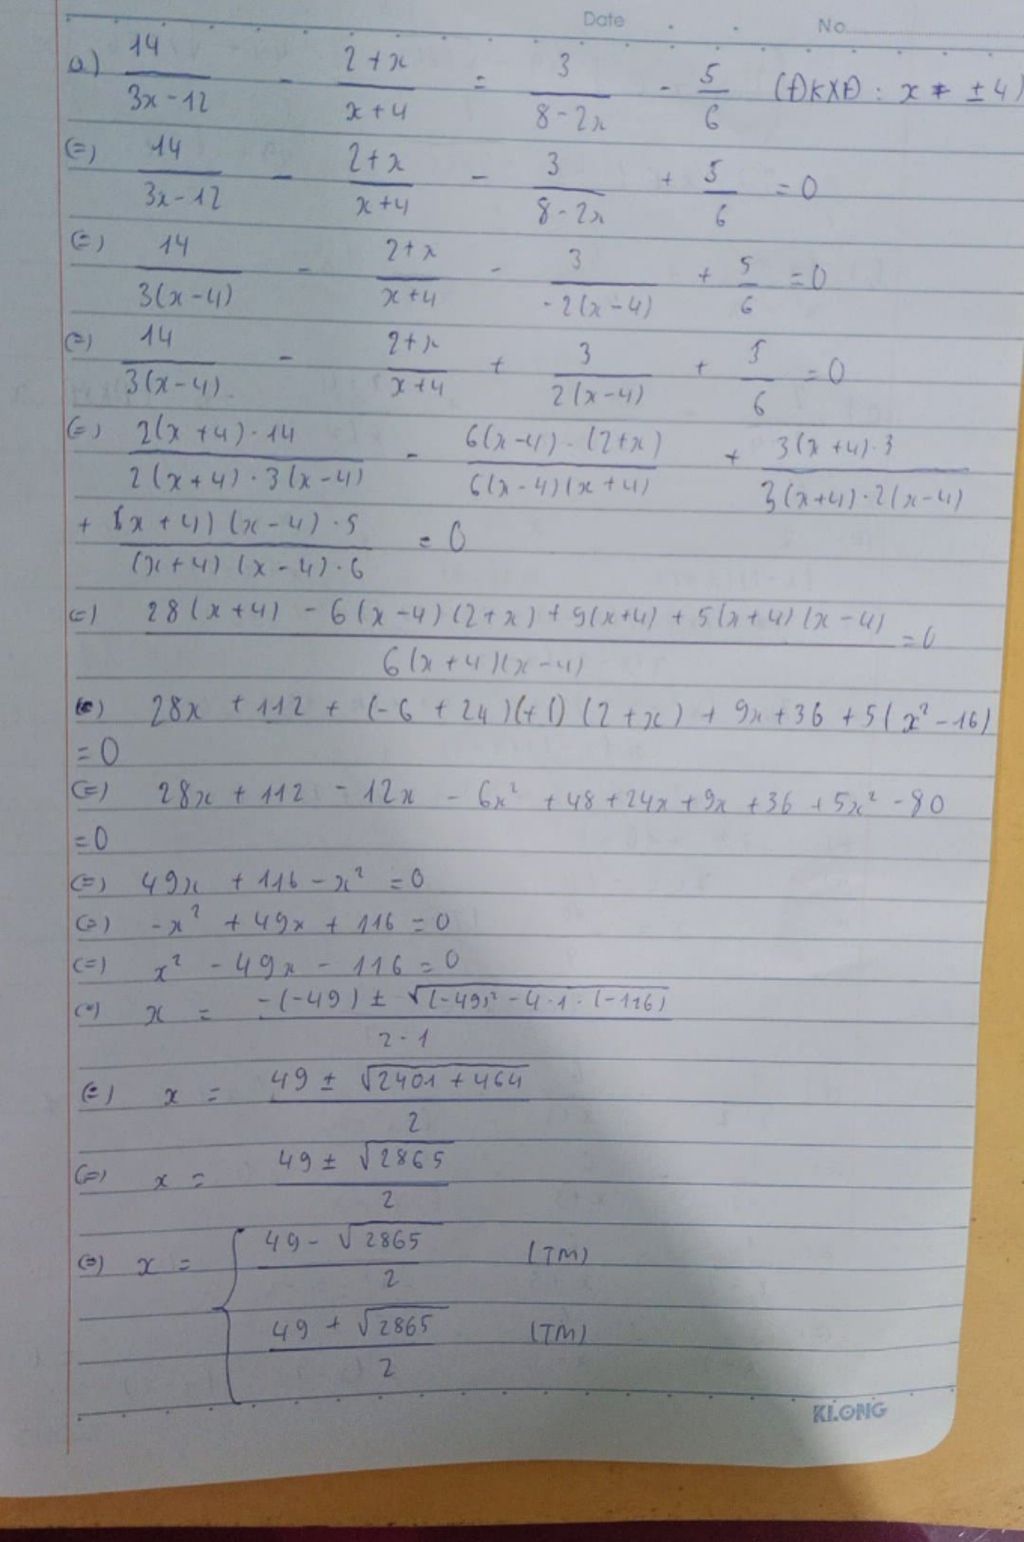 Date No.
a) 14/(3x-12) - (2+x)/(x+4) = 3/(8-2x) - 5/6 (ĐKXĐ: x ≠ ±4)
(=) 14/(3x-12) - (2+x)/(x+4) - 3/(8-2x) + 5/6 = 0
(=) 14/(3(x-4)) - (2+x)/(x+4) - 3/(-2(x-4)) + 5/6 = 0
(=) 14/(3(x-4)) - (2+x)/(x+4) + 3/(2(x-4)) + 5/6 = 0
(=) (2(x+4)·14)/(2(x+4)·3(x-4)) - (6(x-4)·(2+x))/(6(x-4)(x+4)) + (3(x+4)·3)/(3(x+4)·2(x-4))
+ ((x+4)(x-4)·5)/((x+4)(x-4)·6) = 0
(=) (28(x+4) - 6(x-4)(2+x) + 9(x+4) + 5(x+4)(x-4))/(6(x+4)(x-4)) = 0
(=) 28x + 112 + (-6 + 24) (2+x) + 9x + 36 + 5(x² - 16)
= 0
(=) 28x + 112 - 12x - 6x² + 48 + 24x + 9x + 36 + 5x² - 80
= 0
(=) 49x + 116 - x² = 0
(=) -x² + 49x + 116 = 0
(=) x² - 49x - 116 = 0
(=) x = (-(-49) ± √((-49)² - 4·1·(-116)))/(2·1)
(=) x = (49 ± √(2401 + 464))/2
(=) x = (49 ± √2865)/2
(=) x = { (49 - √2865)/2 (TM)
(49 + √2865)/2 (TM)
KLONG